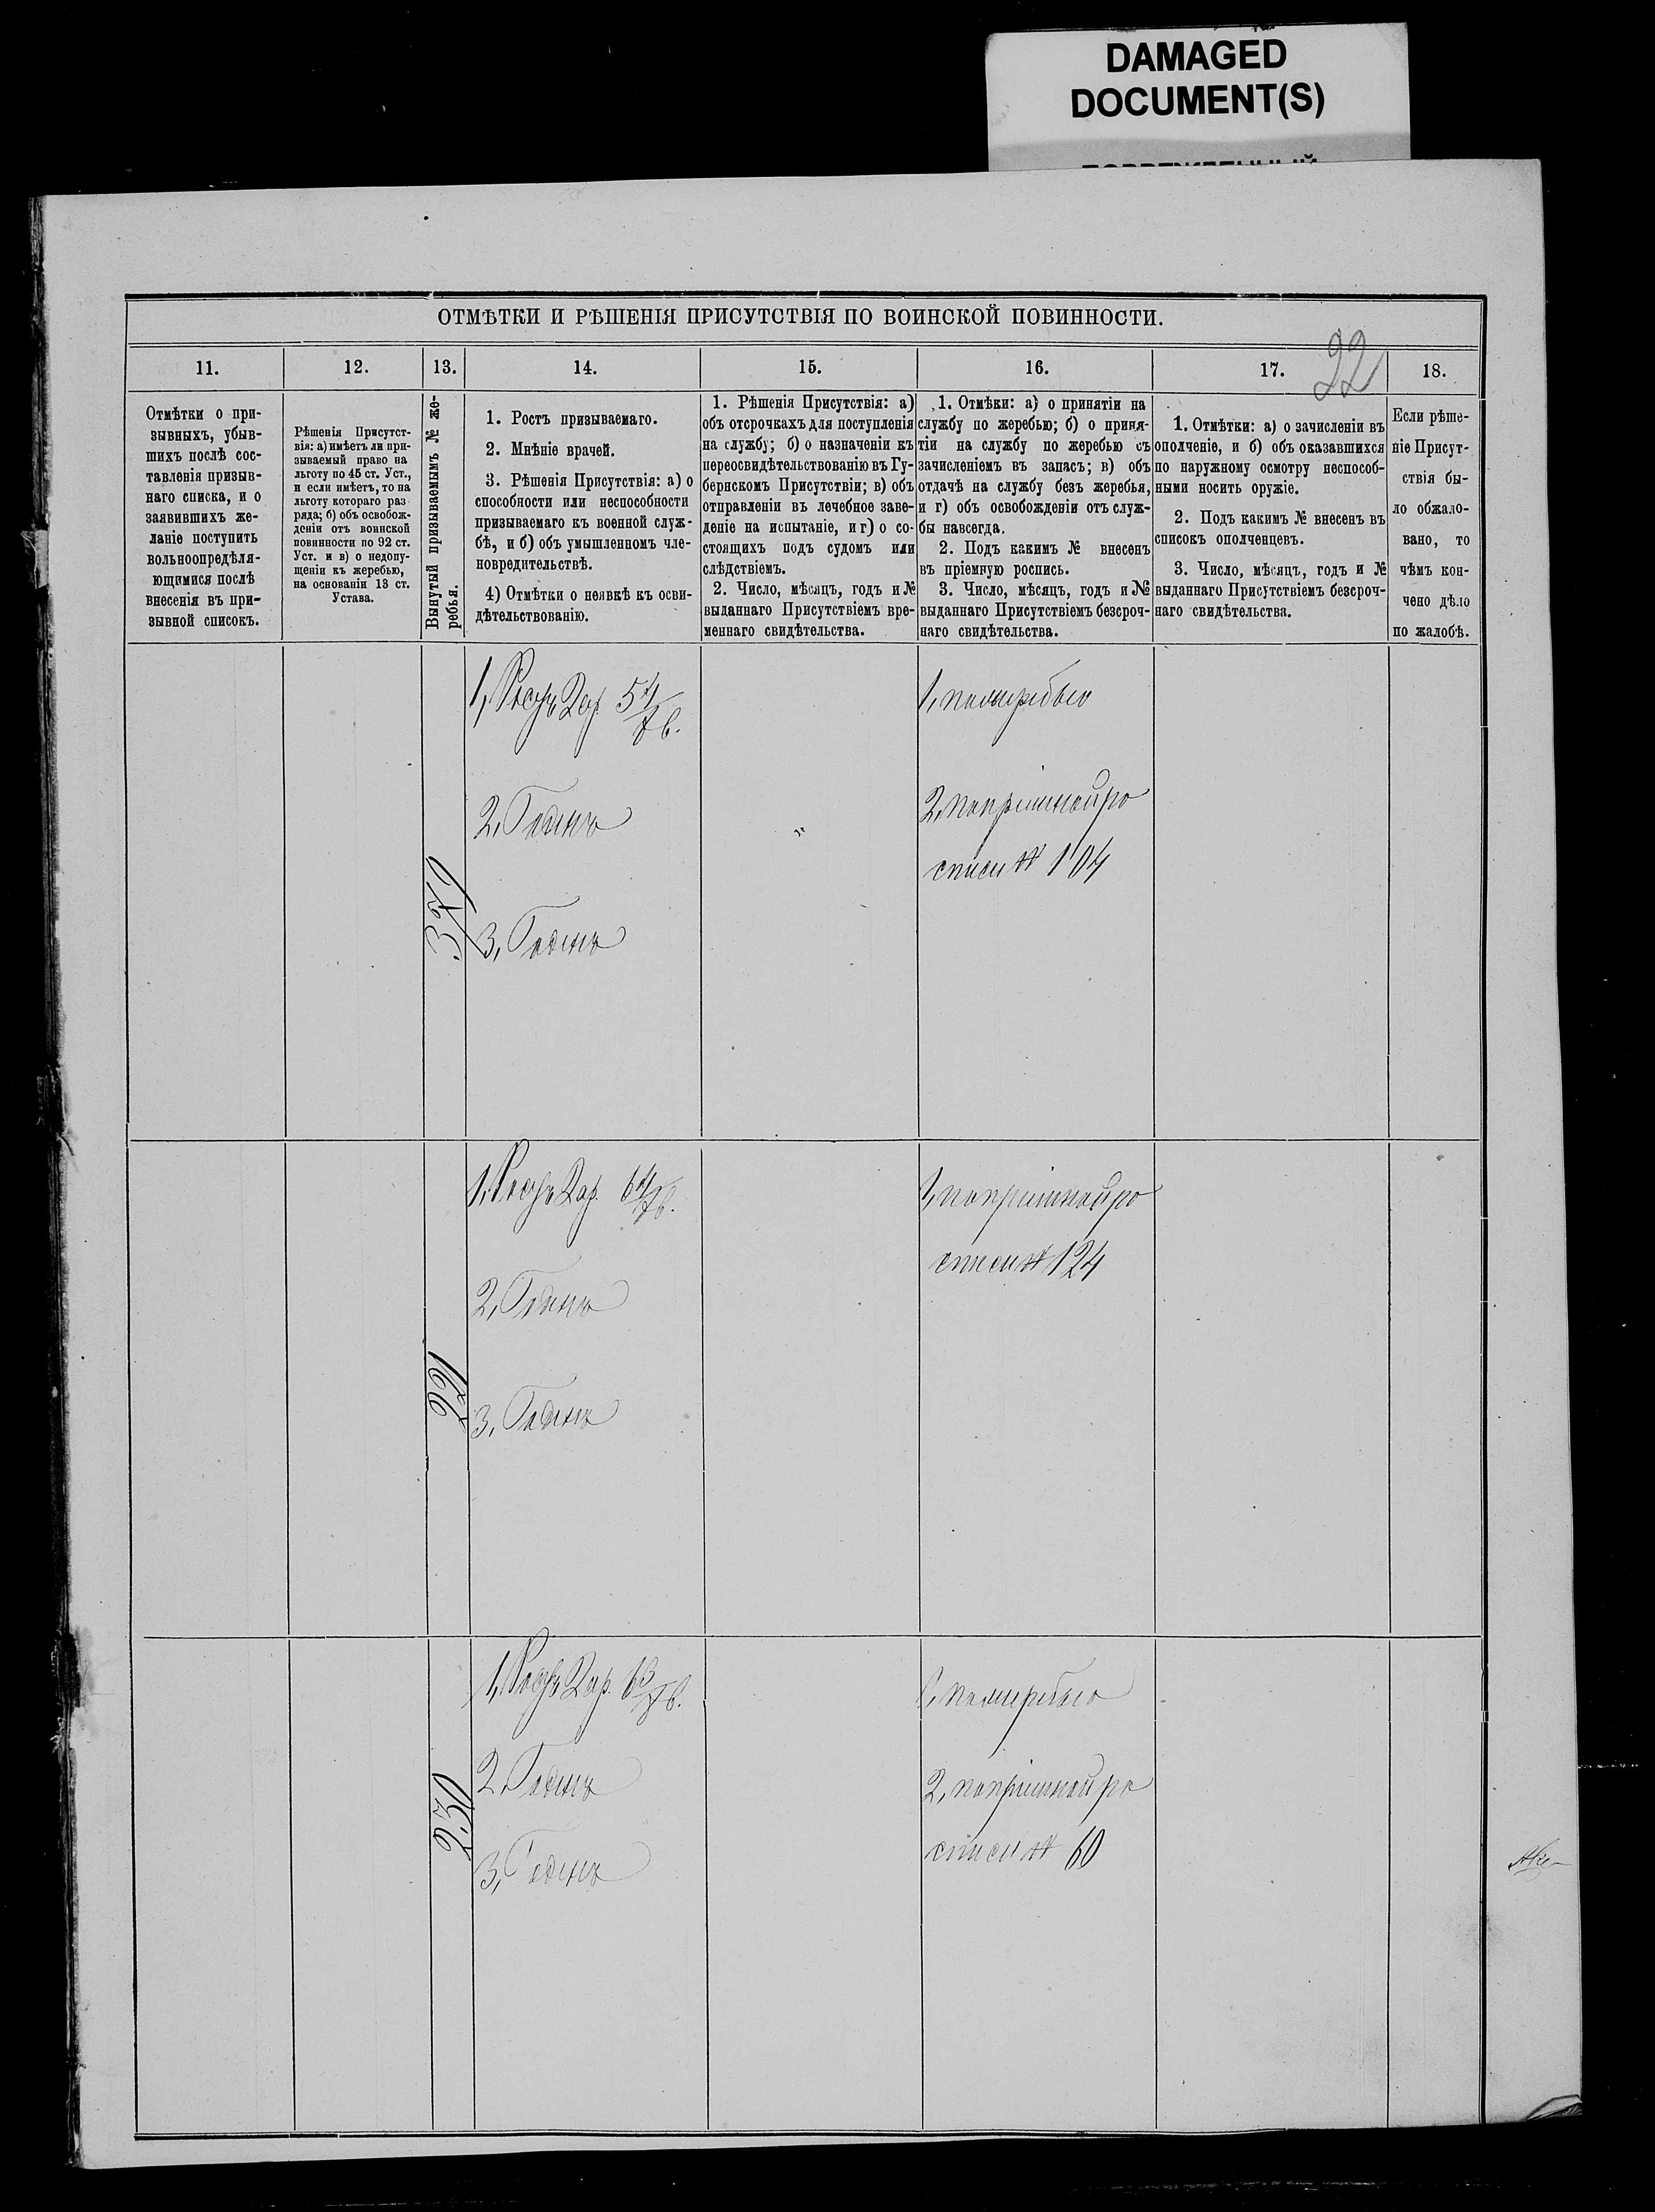 DAMAGED
DOCUMENT(S)
ОТМѢТКИ И РѢШЕНІЯ ПРИСУТСТВІЯ ПО ВОИНСКОЙ ПОВИННОСТИ.
22
11.
12.
13.
14.
15.
16.
17.
18.
Отмѣтки о при-
зывныхъ, убыв-
шихъ послѣ сос-
тавленія призыв-
наго списка, и о
заявившихъ же-
ланіе поступить
вольноопредѣля-
ющимися послѣ
внесенія въ при-
зывной списокъ.
Рѣшенія Присутст-
вія: а) имѣетъ ли при-
зываемый право на
льготу по 45 ст. Уст.,
и если имѣетъ, то на
льготу котораго раз
ряда; б) объ освобож-
деніи отъ воинской
повинности по 92 ст.
Уст. и в) о недопу-
щеніи къ жеребью,
на основаніи 13 ст.
Устава.
Вынутый призываемымъ № же-
ребья.
1. Ростъ призываемаго.
2. Мнѣніе врачей.
3. Рѣшенія Присутствія: а) о
способности или неспособности
призываемаго къ военной служ-
бѣ, и б) объ умышленномъ чле-
новредительствѣ.
4) Отмѣтки о неявкѣ къ осви-
дѣтельствованію.
1. Рѣшенія Присутствія: а)
объ отсрочкахъ для поступленія
на службу; б) о назначеніи къ
переосвидѣтельствованію въ Гу-
бернскомъ Присутствіи; в) объ
отправленіи въ лечебное заве-
деніе на испытаніе, и г) о со-
стоящихъ подъ судомъ или
слѣдствіемъ.
2. Число, мѣсяцъ, годъ и №
выданнаго Присутствіемъ вре-
меннаго свидѣтельства.
1. Отмѣки: а) о принятіи на
службу по жеребью; б) о приня-
тіи на службу по жеребью съ
зачисленіемъ въ запасъ; в) объ
отдачѣ на службу безъ жеребья,
и г) объ освобожденіи отъ служ-
бы навсегда.
2. Подъ какимъ № внесенъ
въ пріемную роспись.
3. Число, мѣсяцъ, годъ и №
выданнаго Присутствіемъ безсроч-
наго свидѣтельства.
1. Отмѣтки: а) о зачисленіи въ
ополченіе, и б) объ оказавшихся
по наружному осмотру неспособ-
ными носить оружіе.
2. Подъ какимъ № внесенъ въ
списокъ ополченцевъ.
3. Число, мѣсяцъ, годъ и №
выданнаго Присутствіемъ безсроч-
наго свидѣтельства.
Если рѣше-
ніе Присут-
ствія бы-
ло обжало-
вано, то
чѣмъ кон-
чено дѣло
по жалобѣ.
1, Ростъ 2 ар. 5 4/8 в.
2, Годенъ
3, Годенъ
1, по жеребью
2, по пріемной ро
списи № 104
1, Ростъ 2 ар. 6 4/8 в.
2, Годенъ
3, Годенъ
1, по пріемной ро
списи № 124
230
1, Ростъ 2 ар. 6 3/8 в.
2, Годенъ
3, Годенъ
1, по жеребью
2, по пріемной ро
списи № 60